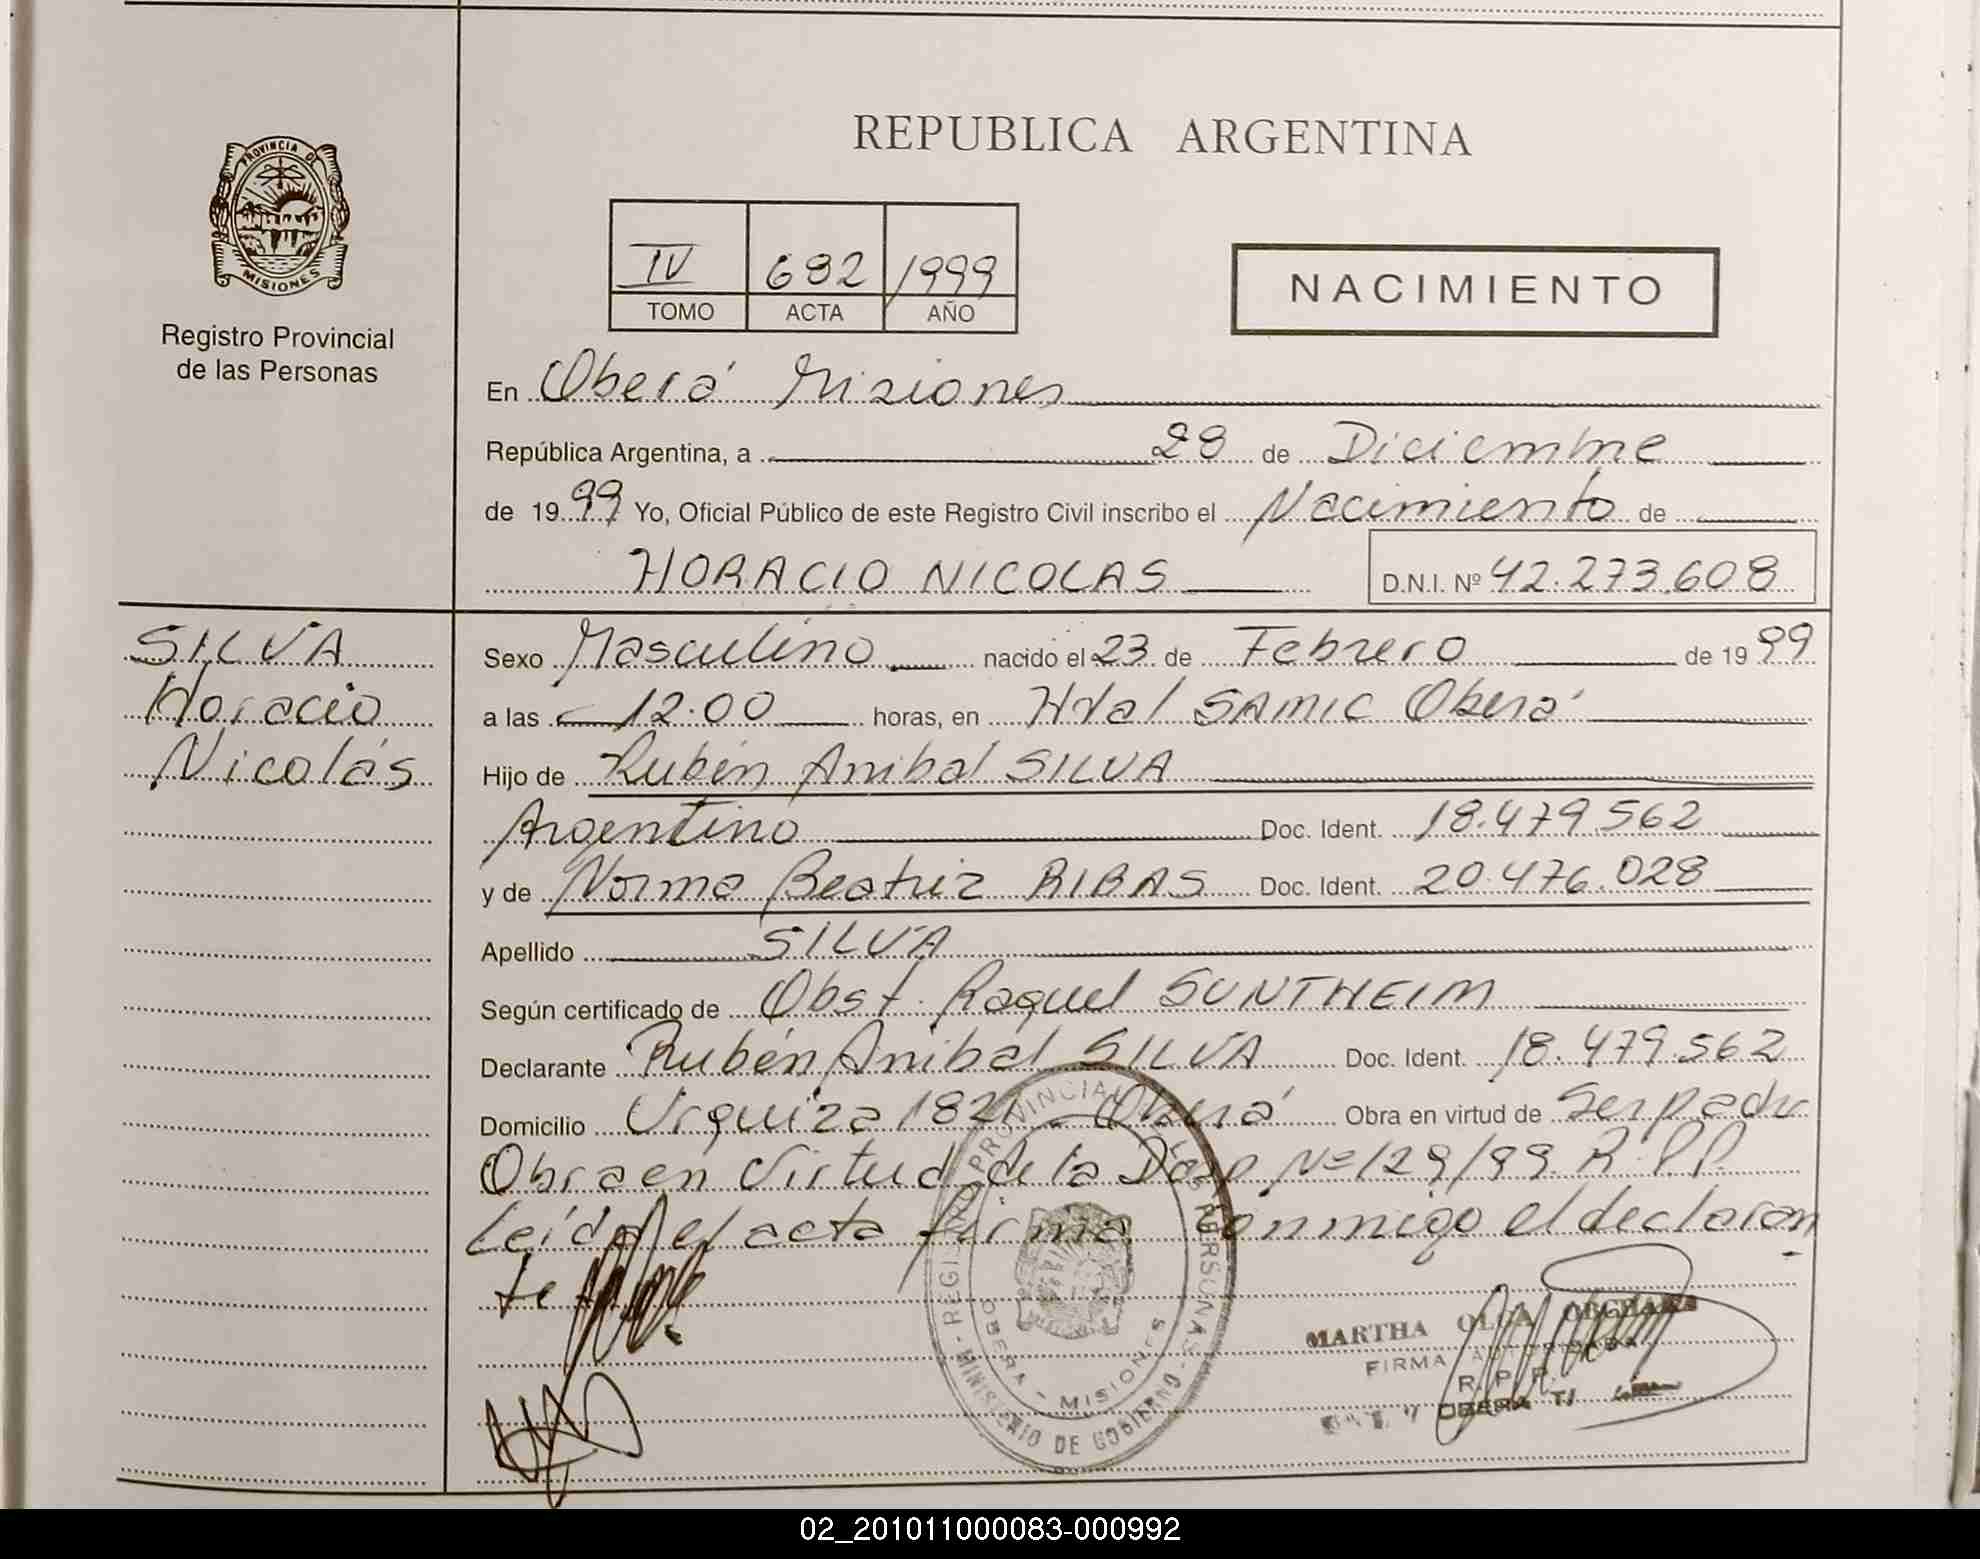 REPUBLICA ARGENTINA
PROVINCIA DE
MISIONES
Registro Provincial
de las Personas
IV 682 1999
TOMO ACTA AÑO
NACIMIENTO
En Oberá Misiones
República Argentina, a 28 de Diciembre
de 1999 Yo, Oficial Público de este Registro Civil inscribo el Nacimiento de
HORACIO NICOLAS D.N.I. Nº 42.273.608
SILVA
Horacio
Nicolás
Sexo Masculino nacido el 23 de Febrero de 1999
a las 12.00 horas, en SAMIC Oberá
Hijo de Rubén Anibal SILVA
Argentino Doc. Ident. 18.479.562
y de Norma Beatriz RIBAS Doc. Ident. 20.476.028
Apellido SILVA
Según certificado de Obst. Raquel SUNTHEIM
Declarante Rubén Anibal SILVA Doc. Ident. 18.479.562
Domicilio Urquiza Oberá Obra en virtud de Ser padre
Obra en Virtud de la Disp Nº 129/99 R.P.P.
Leída el acta firma conmigo el declaran
te
REGISTRO PROVINCIAL DE LAS PERSONAS
OBERA - MISIONES
MINISTERIO DE GOBIERNO
MARTHA OLGA
FIRMA AUTORIZADA
R. P. P.
OBERA
02_201011000083-000992